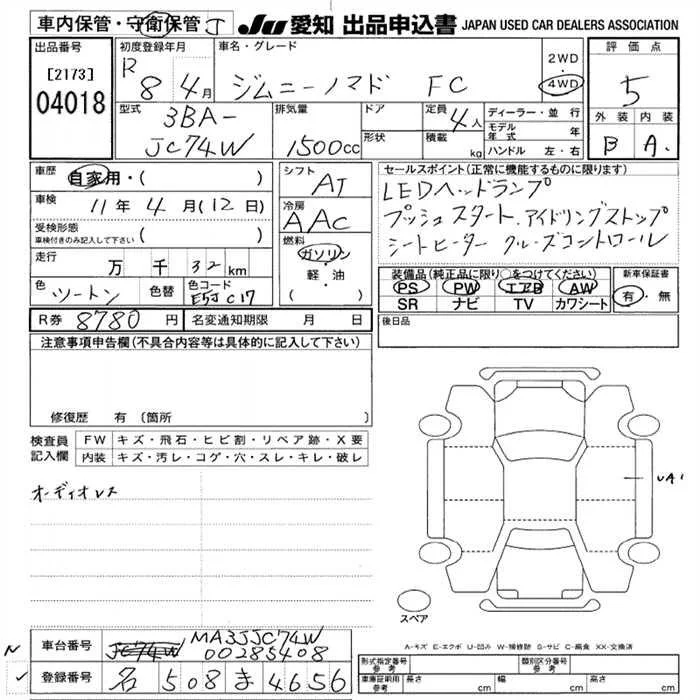 車内保管・守衛保管 J
JU 愛知 出品申込書 JAPAN USED CAR DEALERS ASSOCIATION
出品番号
[2173]
04018
初度登録年月
R 8年 4月
車名・グレード
ジムニーノマド FC
2WD
4WD
評価点
5
外装 内装
B A.
型式
3BA-
JC74W
排気量
1500cc
ドア
形状
定員
4人
積載
kg
ディーラー・並行
モデル年式 年
ハンドル 左・右
車歴
自家用・( )
車検
11年 4月(12日)
受検形態
車検付きのみ記入して下さい ( )
走行
万 千 32 km
色
ツートン
色替
色コード
E5J C17
シフト
AT
冷房
AAC
燃料
ガソリン
軽・油
( )
セールスポイント(正常に機能するものに限ります)
LEDヘッドランプ
プッシュスタート.アイドリングストップ
シートヒーター クルーズコントロール
装備品(純正品に限り○をつけてください)
PS PW エアB AW
SR ナビ TV カワシート
新車保証書
有・無
R券 8780円
名変通知期限 月 日
後日品
注意事項申告欄(不具合内容等は具体的に記入して下さい)
修復歴 有〔箇所
検査員記入欄
FW キズ・飛石・ヒビ割・リペア跡・X要
内装 キズ・汚レ・コゲ・穴・スレ・キレ・破レ
オーディオレス
UA1
スペア
A-キズ E-エクボ U-凹み W-補修跡 S-サビ C-腐食 XX-交換済
N 車台番号
JC74W MA3JJC74W
00285408
登録番号
名 508 ま 4656
形式指定番号 参考
類別区分番号 参考
車庫証明用 参考
長さ cm
幅 cm
高さ cm